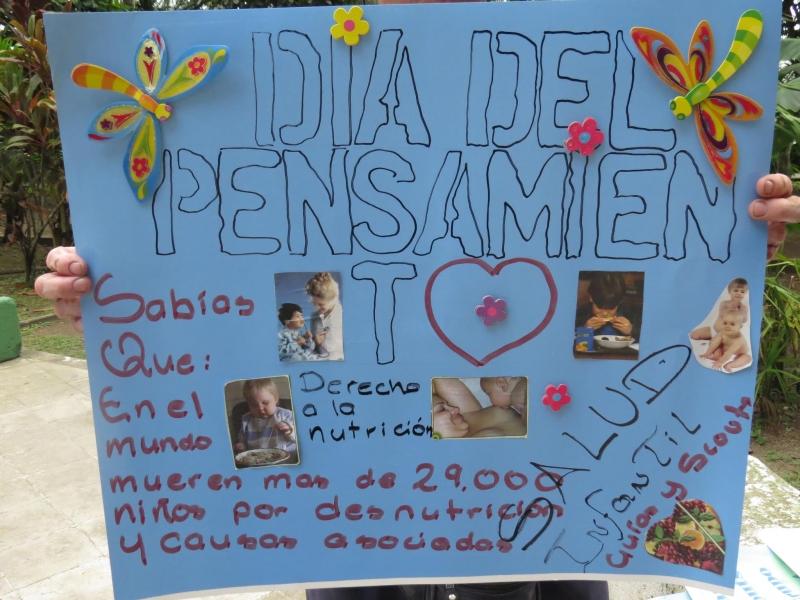 DIA DEL
PENSAMIEN
TO
Sabías
Que:
En el
mundo
mueren mas de 29,000
niños por desnutrición
y causas asociadas
Derecho
a la
nutrición
SALUD
INFANTIL
Guías y Scouts